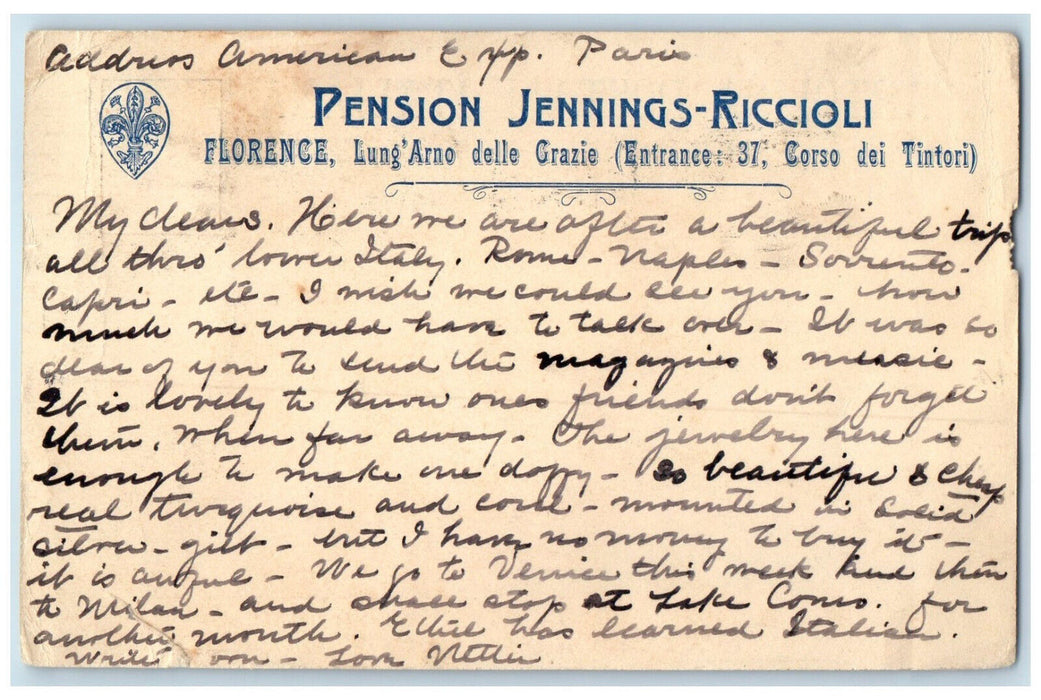 Address American Exp. Paris
PENSION JENNINGS-RICCIOLI
FLORENCE, Lung'Arno delle Grazie (Entrance: 37, Corso dei Tintori)
My dears. Here we are after a beautiful trip
all thro' lower Italy. Rome - Naples - Sorrento -
Capri - etc - I wish we could see you - how
much we would have to talk over - It was so
dear of you to send the magazines & music -
It is lovely to know ones friends don't forget
them, when far away - The jewelry here is
enough to make one dappy - so beautiful & cheap
real turquoise and coral - mounted in solid
silver - gilt - but I have no money to buy it -
it is awful - We go to Venice this week and then
to Milan - and shall stop at Lake Como. for
another month. Ethel has learned Italian.
Write soon - Love Nettie